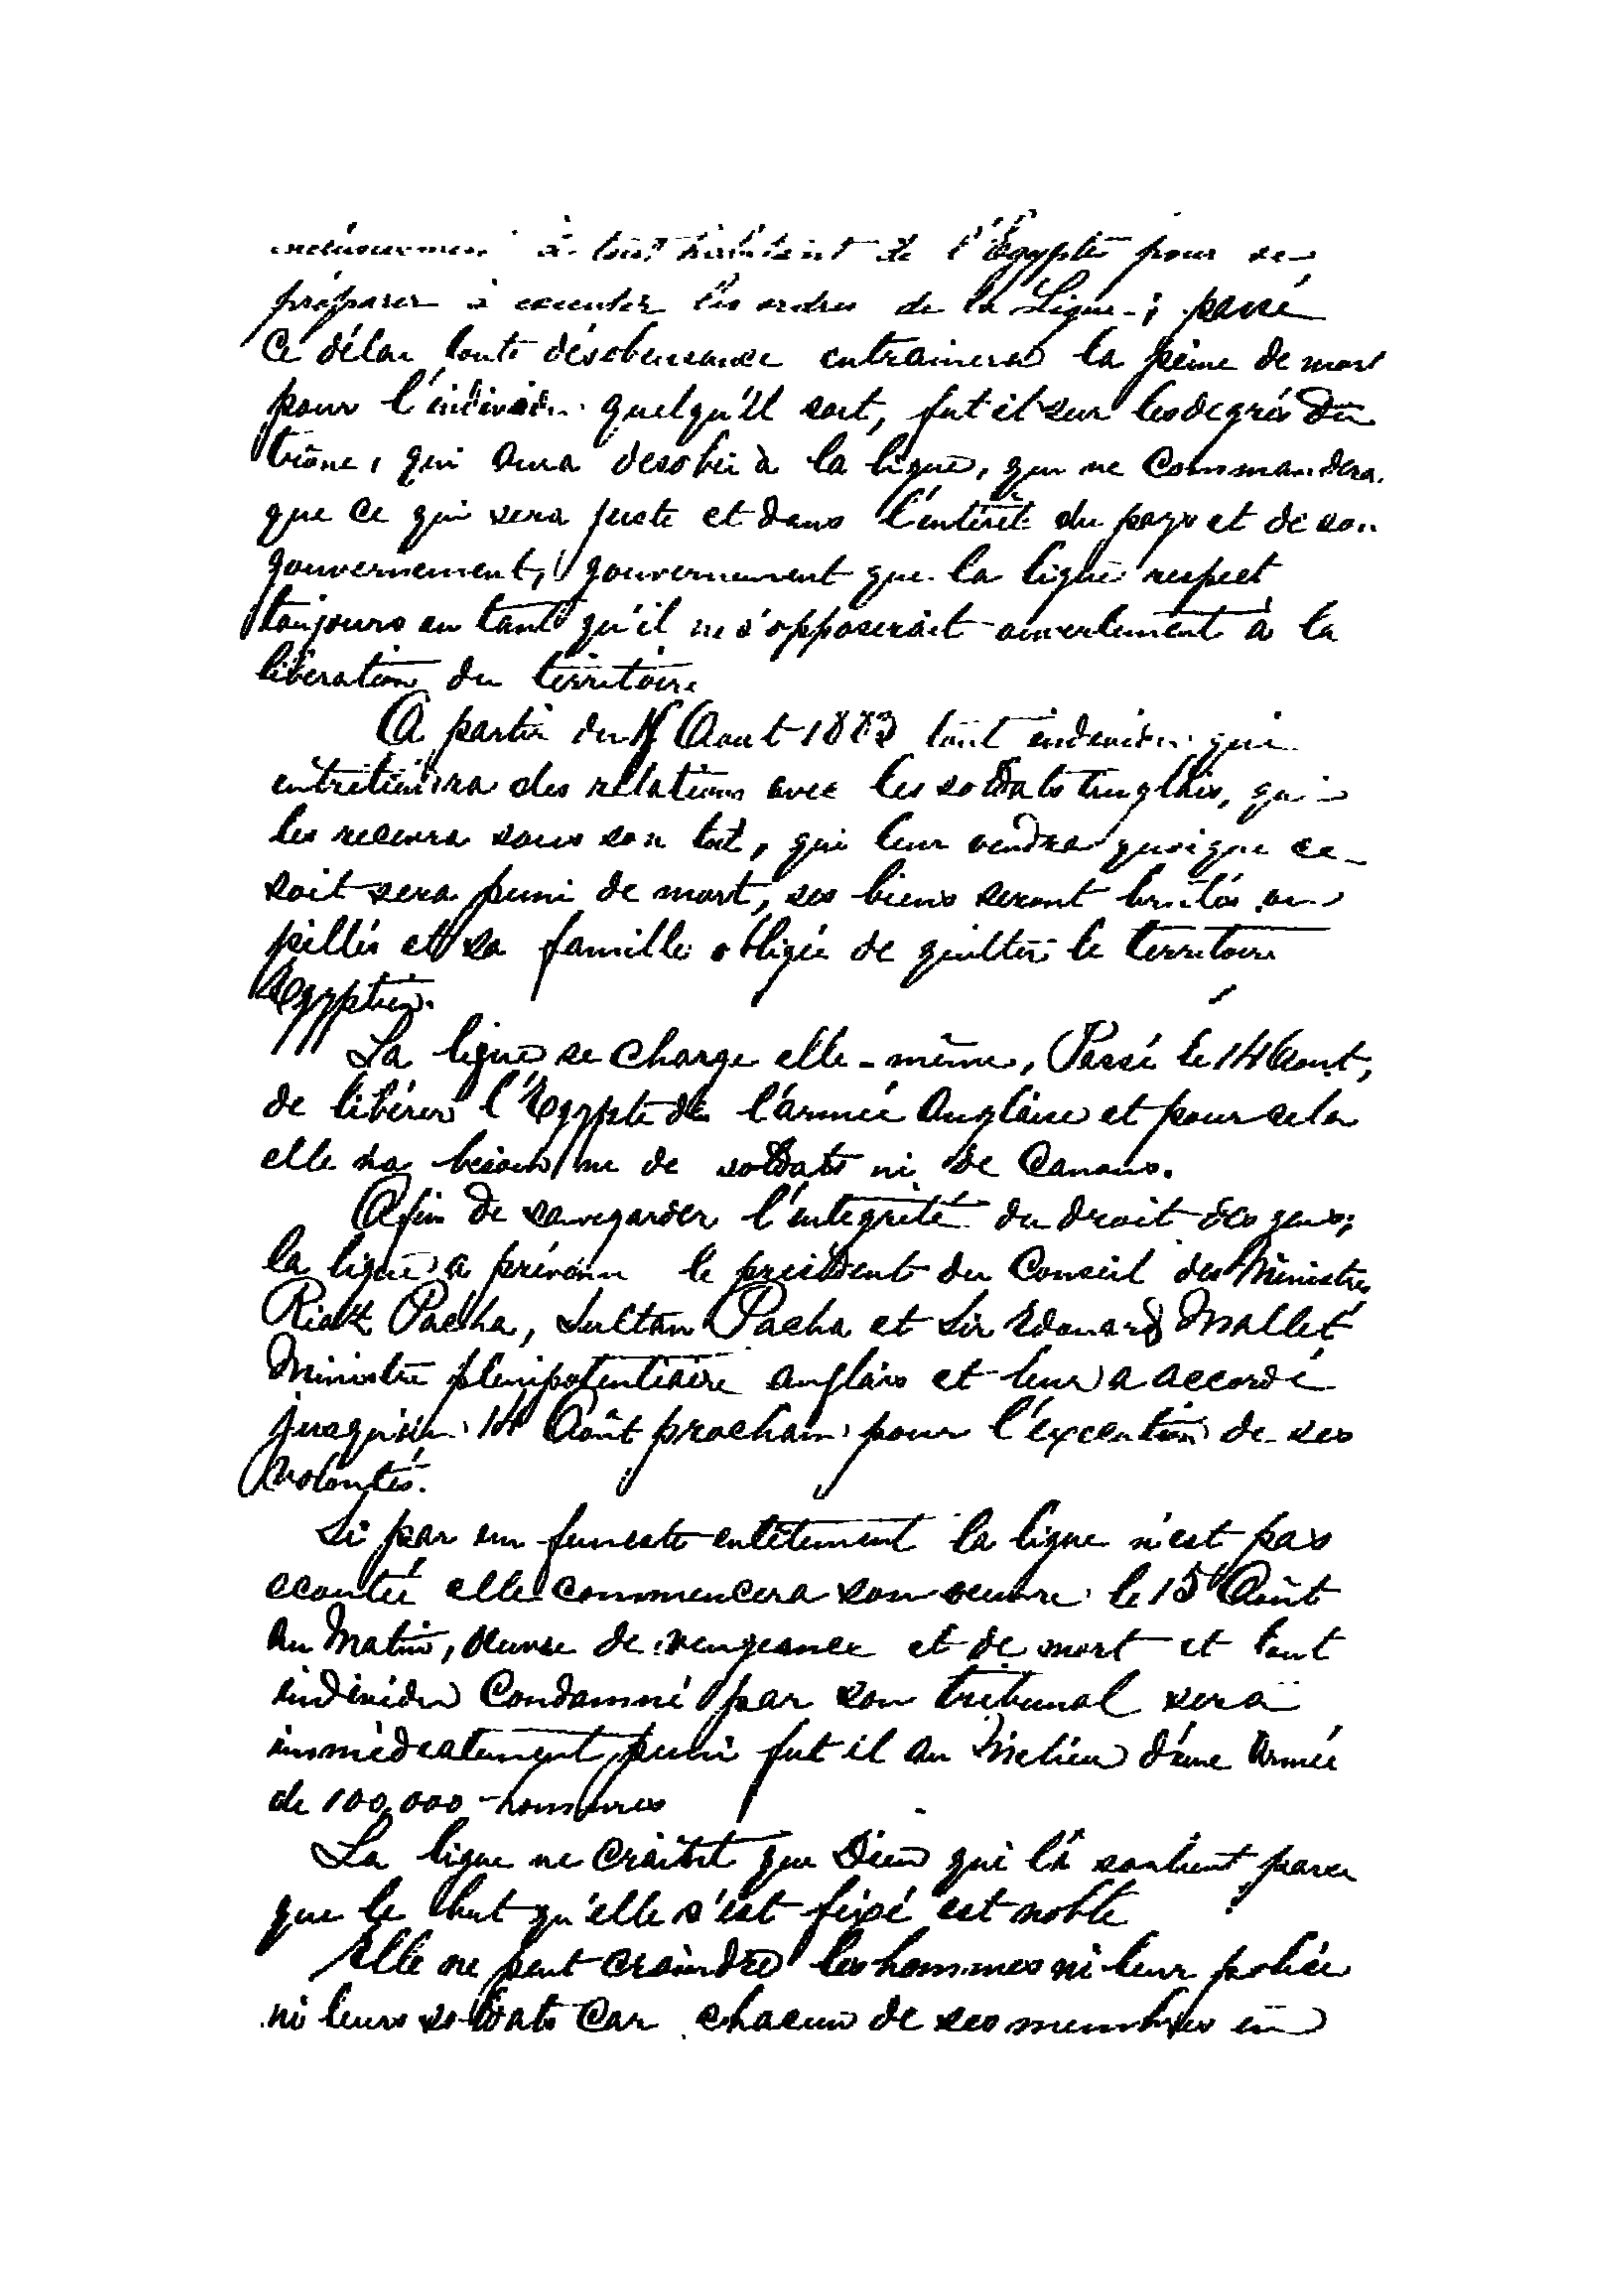 à tout habitant de l'Égypte pour se
préparer à executer les ordres de la Ligue ; passé
Ce délai toute désobeissance entrainera la peine de mort
pour l'individu quelqu'il soit, fut il sur les degrés du
trône, qui aura desobéi à la ligue, qui ne Commandera
que ce qui sera juste et dans l'intérêt du pays et de son
gouvernement, gouvernement que la ligue respect
toujours en tant qu'il ne s'opposerait ouvertement à la
libération du territoire
A partir du Aout 1883 tout individu qui
entretiendra des relations avec les soldats anglais, qui
les recevra sous son toit, qui leur vendra quoique ce
soit sera puni de mort, ses biens seront brulés ou
pillés et sa famille obligée de quitter le territoire
Egyptien.
La ligue se charge elle-même, Passé le 14 Aout,
de libérer l'Egypte de l'armée Anglaise et pour cela
elle n'a besoin ni de soldats ni de Canons.
Afin de sauvegarder l'integrité du droit des gens;
la ligue a prévenu le président du Conseil des Ministres
Riaz Pacha, Sultan Pacha et Sir Edouard Mallet
Ministre plenipotentiaire anglais et leur a accordé
jusqu'au 14 Août prochain pour l'execution de ses
volontés.
Si par un funeste entêtement la ligue n'est pas
ecoutée elle commencera son oeuvre le 15 Août
au Matin, Oeuvre de vengeance et de mort et tout
individu Condamné par son tribunal sera
immédiatement puni fut il au Milieu d'une Armée
de 100,000 hommes
La ligue ne Craint que Dieu qui la soutient parce
que le but qu'elle s'est fixé est noble
Elle ne peut craindre les hommes ni leur police
ni leurs soldats Car chacun de ses membres en